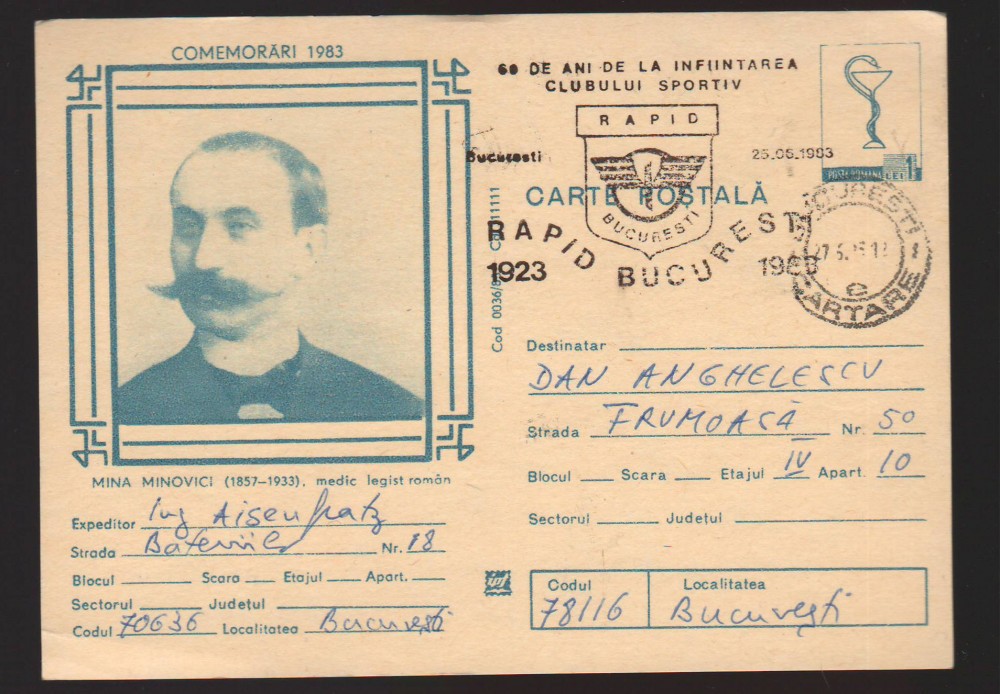 COMEMORĂRI 1983
MINA MINOVICI (1857–1933), medic legist român
Expeditor Ing Aisenfratz
Strada Nr. 18
Blocul Scara Etajul Apart.
Sectorul Județul
Codul 70636 Localitatea București
60 DE ANI DE LA INFIINTAREA
CLUBULUI SPORTIV
RAPID
Bucuresti
25.06.1983
BUCURESTI
RAPID BUCURESTI
1923 1983
POSTA ROMANA 1 LEU
CARTE POȘTALĂ
BUCURESTI
CARTARE
Cod 0036/8
11111
Destinatar
DAN ANGHELESCU
Strada FRUMOASĂ Nr. 50
Blocul Scara Etajul IV Apart. 10
Sectorul Județul
Codul Localitatea
78116 București